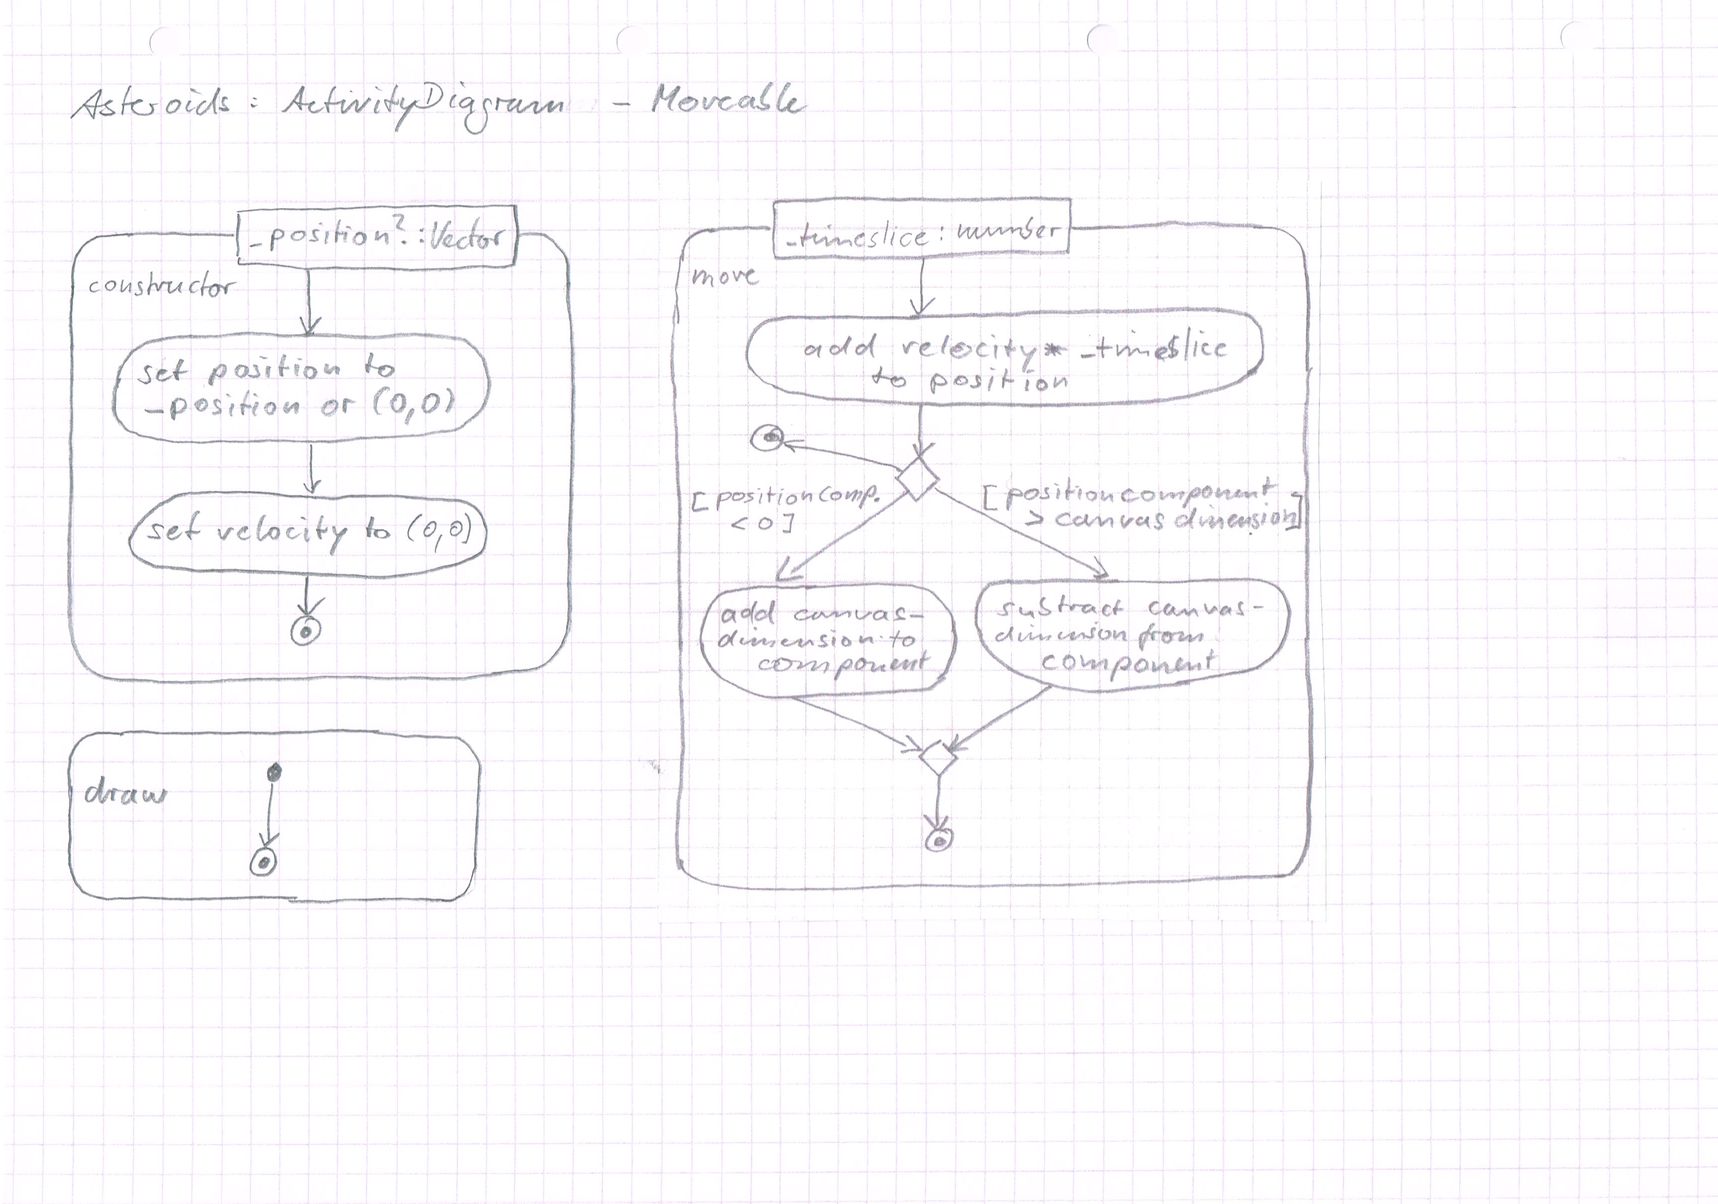 Asteroids: ActivityDiagram - Moveable
_position?: Vector
constructor
set position to
_position or (0,0)
set velocity to (0,0)
draw
_timeslice: number
move
add velocity * _timeslice
to position
[positionComp.
< 0]
[positioncomponent
> canvas dimension]
add canvas-
dimension to
component
subtract canvas-
dimension from
component